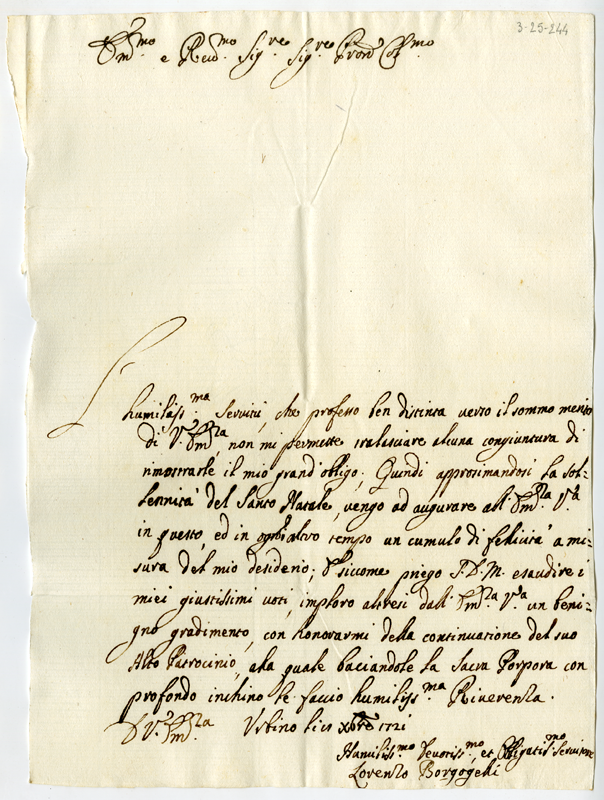 3-25-244
Em.mo e Rev.mo Sig.re Sig.re Pron. Col.mo
L'
humiliss.ma servitù, che professo ben distinta verso il sommo merito
di V. Em.za non mi permette tralasciare alcuna congiuntura di
rimostrarle il mio grand'obligo. Quindi approsimandosi la sol=
lennità del Santo Natale, vengo ad augurare all'Em.za V.a
in questo, ed in ogn'altro tempo un cumulo di felicità a mi=
sura del mio desiderio; E siccome priego S.D.M. esaudire i
miei giustissimi voti, imploro altresì dall'Em.za V.a un beni=
gno gradimento, con honorarmi della continuatione del suo
Alto Patrocinio, alla quale baciandole la Sacra Porpora con
profondo inchino le faccio humiliss.ma Riverenza.
D V. Em.za Urbino li xbre 1721
Humiliss.mo Devotiss.mo, et Obligatis.mo Servitore
Lorenzo Borgogelli